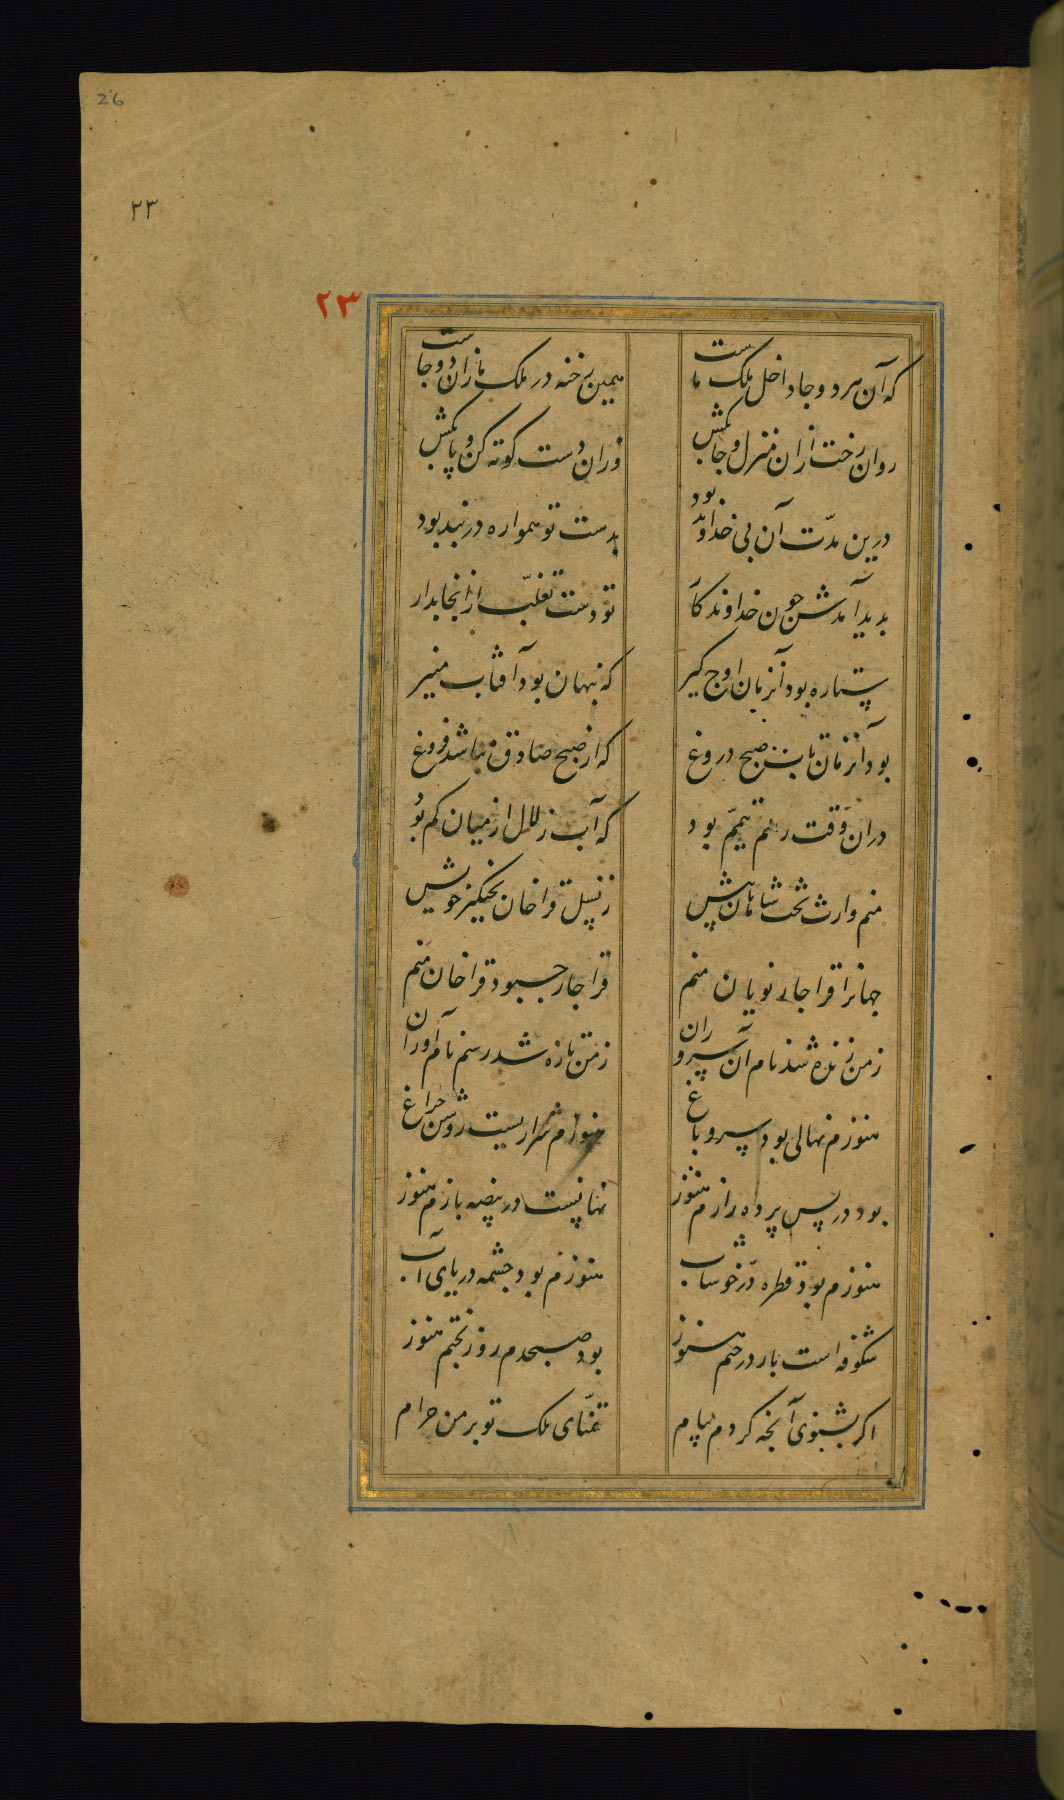 26
۲۳
۲۳
که آن هر دو جا داخل ملک ماست همین رخنه در ملک ما زان دو جاست
روان رخت ازان منزل و جا بکش وزان دست کوته کن و پا بکش
درین مدّت آن بی خداوند بود بدست تو همواره در بند بود
بدید آمدش چون خداوندکار تو دست تغلّب از آنجا بدار
ستاره بود آنزمان اوج گیر که پنهان بود آفتاب منیر
بود آنزمان تابش صبح دروغ که از صبح صادق نباشد فروغ
دران وقت رسم تیمّم بود که آب زلال از میان گم بود
منم وارث تخت شاهان پیش ز نسل قراخان چنگیز خویش
جهانرا قراجار نویان منم قراجار چبود قراخان منم
ز من زنده شد نام آن سروران ز من تازه شد رسم نام آوران
هنوزم نهالی بود سرو باغ هنوزم شراریست روشن چراغ
بود در پس پرده رازم هنوز نهانیست در بیضه بازم هنوز
هنوزم بود قطره درّ خوشاب هنوزم بود چشمه دریای آب
شکوفه است بار درختم هنوز بود صبحدم روز بختم هنوز
اگر بشنوی آنچه کردم پیام تمنّای ملک تو بر من حرام